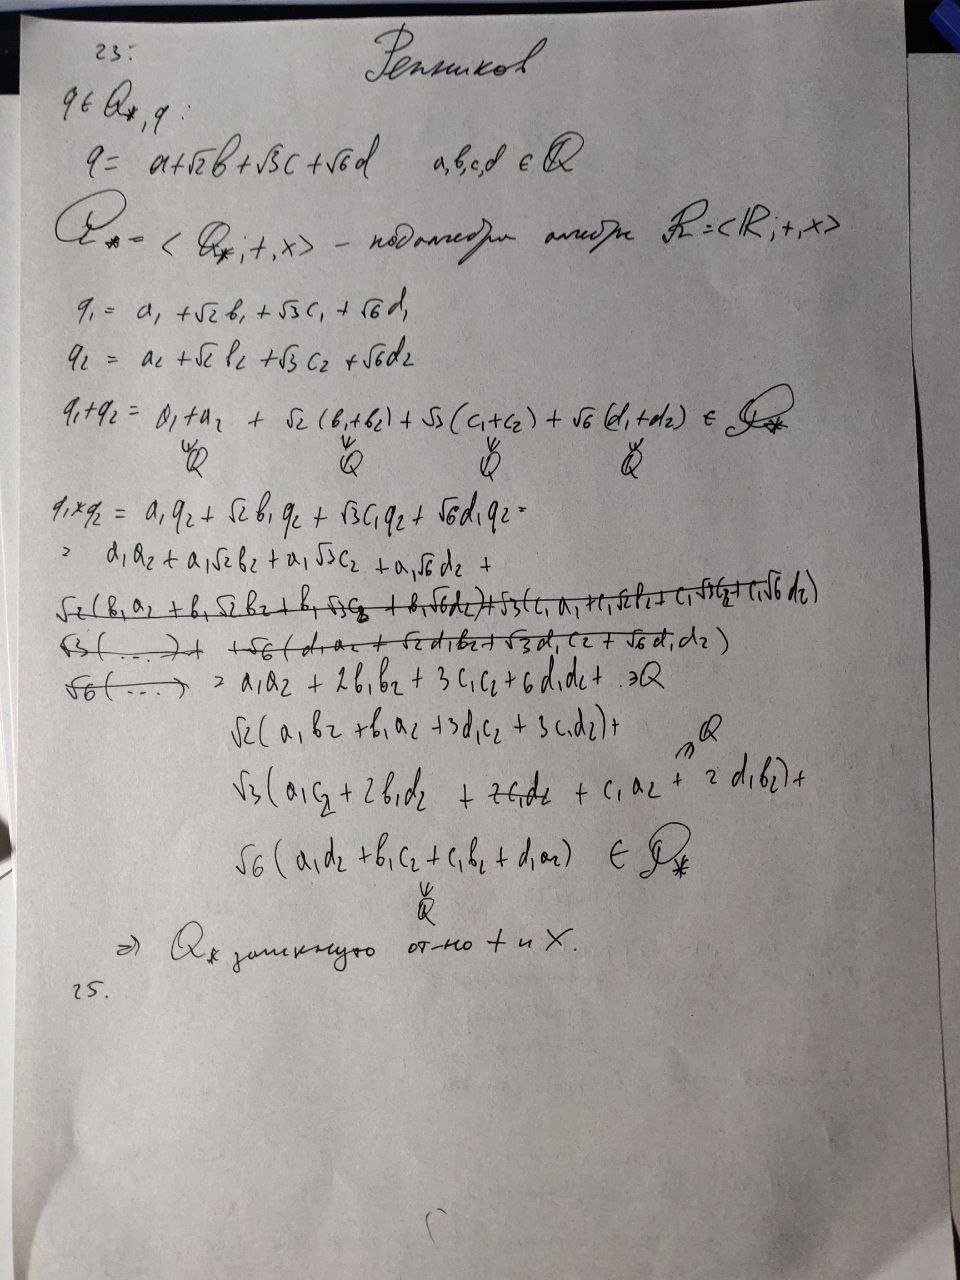 23:
Репников
q ∈ Q*, q:
q = a+√2b+√3c+√6d a,b,c,d ∈ Q
Q* = <Q*;+,×> – подалгебра алгебры R=<R;+,×>
q₁ = a₁ +√2b₁ + √3c₁ + √6d₁
q₂ = a₂ +√2b₂ +√3c₂ +√6d₂
q₁+q₂ = a₁+a₂ + √2(b₁+b₂) + √3(c₁+c₂) + √6(d₁+d₂) ∈ Q*
Q Q Q Q
q₁×q₂ = a₁q₂ + √2b₁q₂ + √3c₁q₂ + √6d₁q₂ =
= a₁a₂ + a₁√2b₂ + a₁√3c₂ + a₁√6d₂ +
√2(b₁a₂ + b₁√2b₂ + b₁√3c₂ + b₁√6d₂)+√3(c₁a₁+c₁√2b₂+c₁√3c₂+c₁√6d₂)
√3(....)+ +√6(d₁a₂ + √2d₁b₂+√3d₁c₂+√6d₁d₂)
√6(....) = a₁a₂ + 2b₁b₂ + 3c₁c₂+6d₁d₂+ ∋Q
√2(a₁b₂+b₁a₂+3d₁c₂+3c₁d₂)+
Q
√3(a₁c₂+2b₁d₂ + 2c₁d₂ + c₁a₂ + 2d₁b₂)+
√6(a₁d₂+b₁c₂+c₁b₂+d₁a₂) ∈ Q*
Q
⇒ Q* замкнуто от-но + и ×.
25.